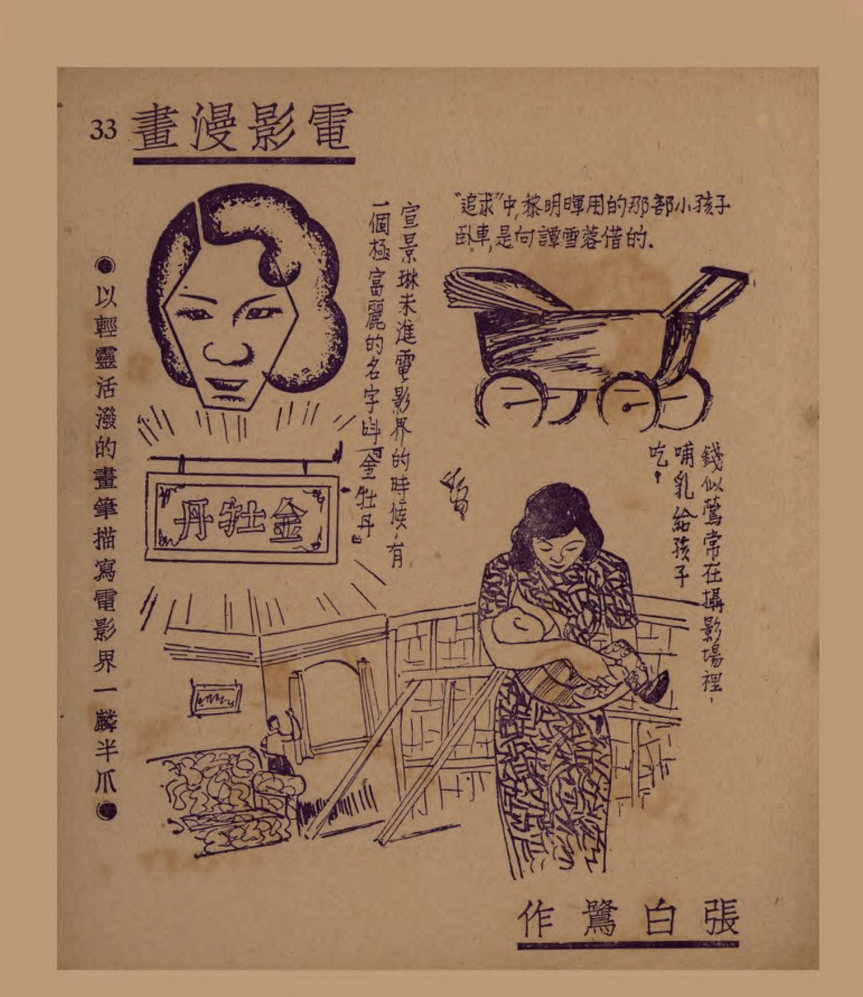 電影漫畫
33
“追求”中,黎明暉用的那部小孩子
臥車,是向譚雪蓉借的.
宣景琳未進電影界的時候,有
一個極富麗的名字叫『金牡丹』
金牡丹
錢似鶯常在攝影場裡,
哺乳給孩子
吃。
●以輕靈活潑的畫筆描寫電影界一麟半爪●
張白鷺作